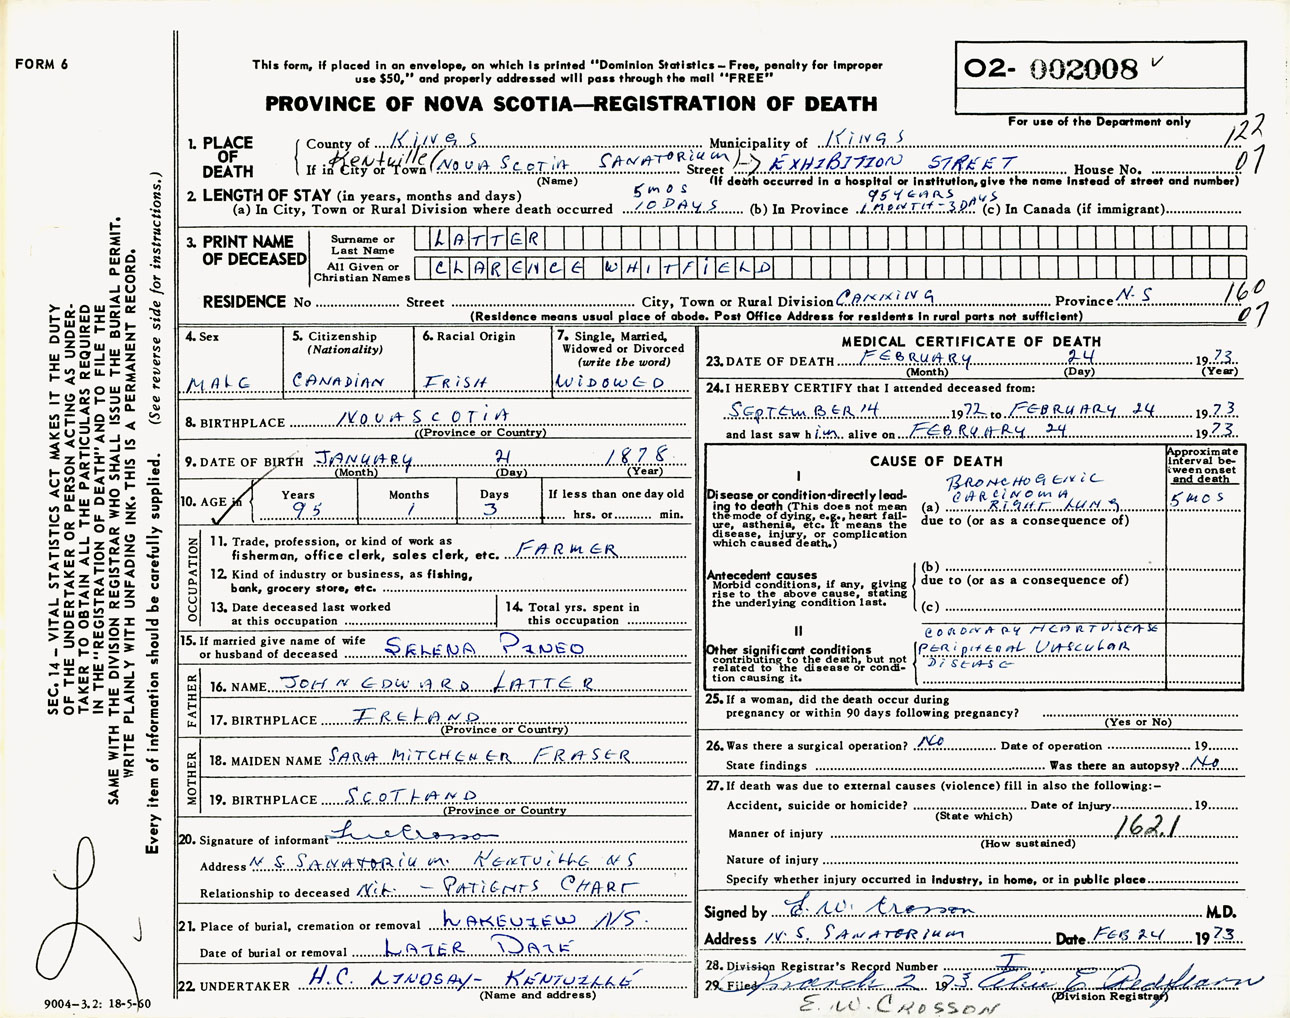 FORM 6
This form, if placed in an envelope, on which is printed "Dominion Statistics – Free, penalty for improper
use $50," and properly addressed will pass through the mail "FREE"
PROVINCE OF NOVA SCOTIA—REGISTRATION OF DEATH
O2- 002008
For use of the Department only
122
07
1. PLACE OF DEATH
County of KINGS Municipality of KINGS
If in City or Town Kentville (NOVA SCOTIA SANATORIUM) Street EXHIBITION STREET House No.
(Name) (If death occurred in a hospital or institution, give the name instead of street and number)
2. LENGTH OF STAY (in years, months and days)
(a) In City, Town or Rural Division where death occurred 5 MOS 10 DAYS (b) In Province 95 YEARS 1 MONTH - 3 DAYS (c) In Canada (if immigrant)
3. PRINT NAME OF DECEASED
Surname or Last Name LATTER
All Given or Christian Names CLARENCE WHITFIELD
RESIDENCE No Street City, Town or Rural Division CANNING Province N.S
160
07
(Residence means usual place of abode. Post Office Address for residents in rural parts not sufficient)
4. Sex MALE
5. Citizenship (Nationality) CANADIAN
6. Racial Origin IRISH
7. Single, Married, Widowed or Divorced (write the word) WIDOWED
8. BIRTHPLACE NOVA SCOTIA
((Province or Country)
9. DATE OF BIRTH JANUARY 21 1878
(Month) (Day) (Year)
10. AGE in Years 95 Months 1 Days 3 If less than one day old
hrs. or min.
OCCUPATION
11. Trade, profession, or kind of work as
fisherman, office clerk, sales clerk, etc. FARMER
12. Kind of industry or business, as fishing,
bank, grocery store, etc.
13. Date deceased last worked
at this occupation
14. Total yrs. spent in
this occupation
15. If married give name of wife
or husband of deceased SELENA PINEO
FATHER
16. NAME JOHN EDWARD LATTER
17. BIRTHPLACE IRELAND
(Province or Country)
MOTHER
18. MAIDEN NAME SARA MITCHENER FRASER
19. BIRTHPLACE SCOTLAND
(Province or Country
20. Signature of informant
Address N.S. SANATORIUM. KENTVILLE NS
Relationship to deceased Nil. - PATIENTS CHART
21. Place of burial, cremation or removal LAKEVIEW N/S.
Date of burial or removal LATER DATE
22. UNDERTAKER H.C. LINDSAY - KENTVILLE
(Name and address)
MEDICAL CERTIFICATE OF DEATH
23. DATE OF DEATH FEBRUARY 24 1973
(Month) (Day) (Year)
24. I HEREBY CERTIFY that I attended deceased from:
SEPTEMBER 14 1972 to FEBRUARY 24 1973
and last saw him alive on FEBRUARY 24 1973.
CAUSE OF DEATH
Approximate interval be-tween onset and death
I
Disease or condition-directly lead-
ing to death (This does not mean
the mode of dying, e.g., heart fail-
ure, asthenia, etc. It means the
disease, injury, or complication
which caused death.)
(a) BRONCHOGENIC CARCINOMA RIGHT LUNG 5 MOS
due to (or as a consequence of)
Antecedent causes
Morbid conditions, if any, giving
rise to the above cause, stating
the underlying condition last.
(b)
due to (or as a consequence of)
(c)
II
Other significant conditions
contributing to the death, but not
related to the disease or condi-
tion causing it.
CORONARY HEART DISEASE
PERIPHERAL VASCULAR
DISEASE
25. If a woman, did the death occur during
pregnancy or within 90 days following pregnancy?
(Yes or No)
26. Was there a surgical operation? No Date of operation 19
State findings Was there an autopsy? No
27. If death was due to external causes (violence) fill in also the following:–
Accident, suicide or homicide? Date of injury 19
(State which)
Manner of injury 162.1
(How sustained)
Nature of injury
Specify whether injury occurred in industry, in home, or in public place
Signed by E. W. Crosson M.D.
Address N. S. SANATORIUM Date FEB 24 1973
28. Division Registrar's Record Number I
29. Filed March 2 1973 E Redfearn
(Division Registrar)
E. W. CROSSON
SEC. 14 – VITAL STATISTICS ACT MAKES IT THE DUTY
OF THE UNDERTAKER OR PERSON ACTING AS UNDER-
TAKER TO OBTAIN ALL THE PARTICULARS REQUIRED
IN THE "REGISTRATION OF DEATH" AND TO FILE THE
SAME WITH THE DIVISION REGISTRAR WHO SHALL ISSUE THE BURIAL PERMIT.
WRITE PLAINLY WITH UNFADING INK. THIS IS A PERMANENT RECORD.
Every item of information should be carefully supplied. (See reverse side for instructions.)
9004–3.2: 18-5-60